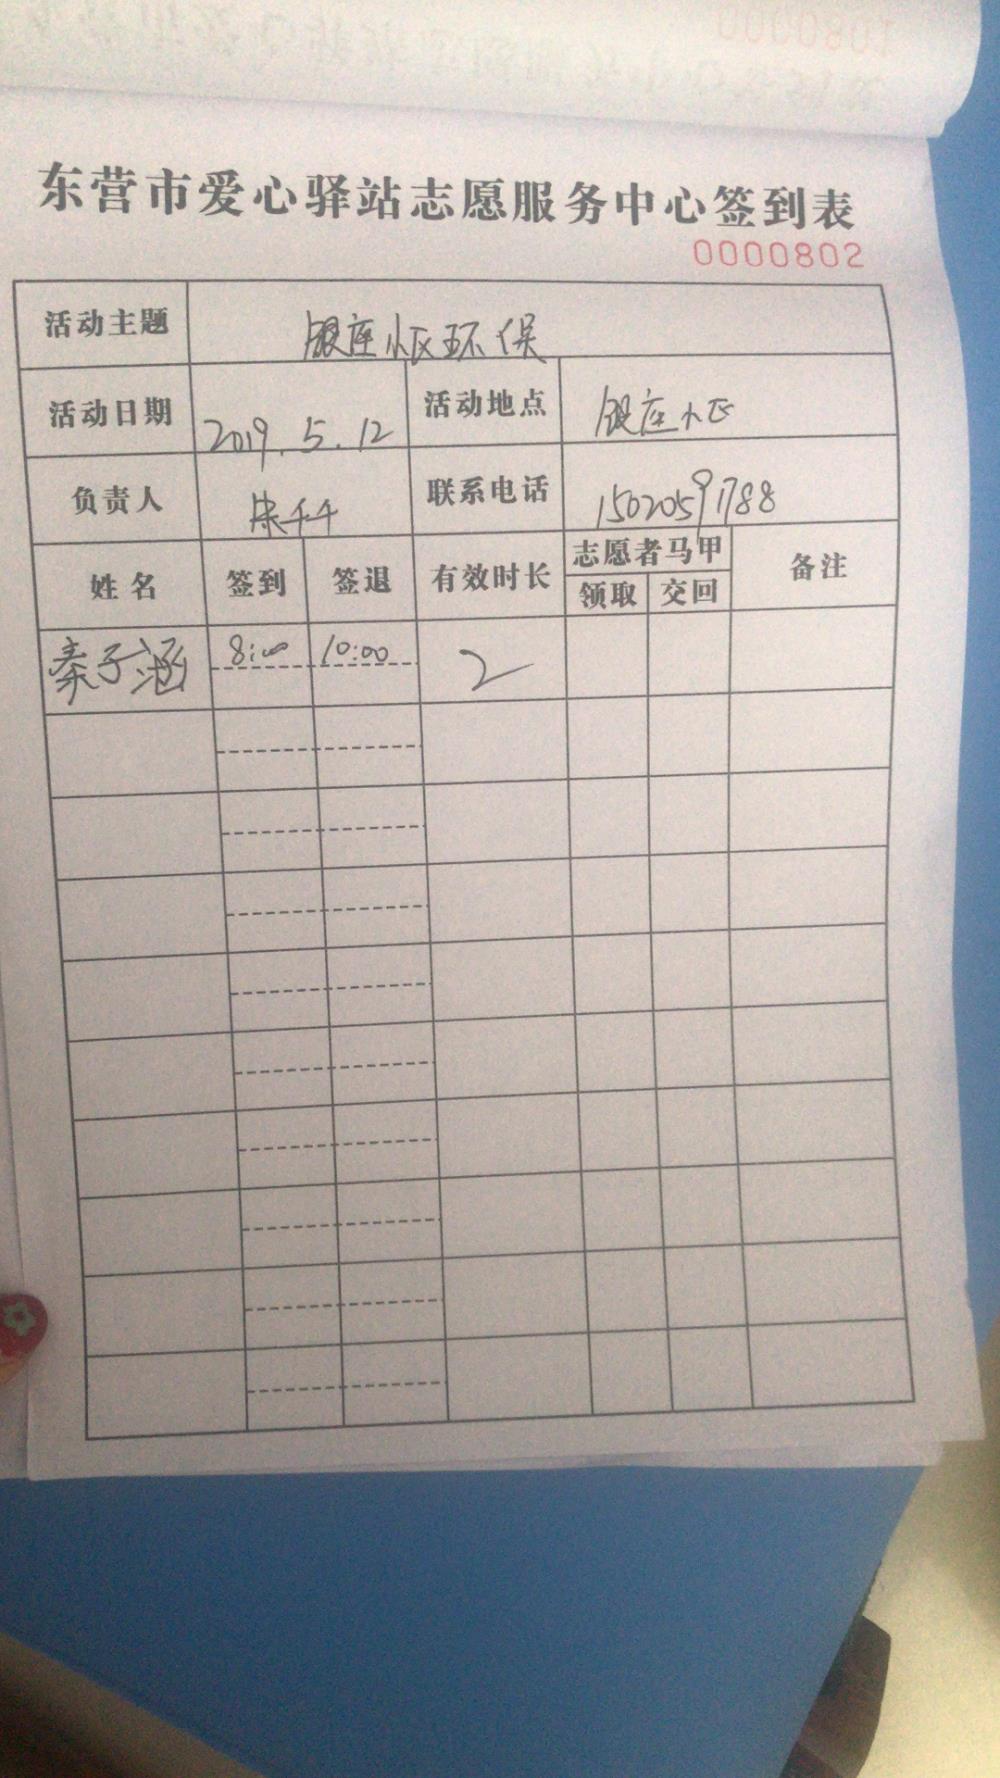 东营市爱心驿站志愿服务中心签到表
0000802
活动主题 银座小区环保
活动日期 2019.5.12 活动地点 银座小区
负责人 联系电话 15020591788
姓名 签到 签退 有效时长 志愿者马甲 备注
领取 交回
秦子涵 8:00 10:00 2